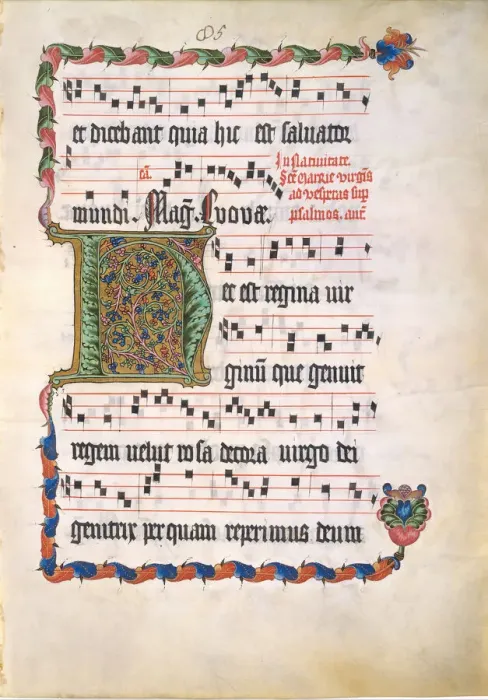 et dicebant quia hic est saluator
In Natiuitate.
Scē Marie virgīs
ad vesperas sup
psalmos. anē
mundi. Maḡ. Evovae.
Hec est regina uir
ginū que genuit
regem uelut rosa decora uirgo dei
genitrix per quam reperimus deum